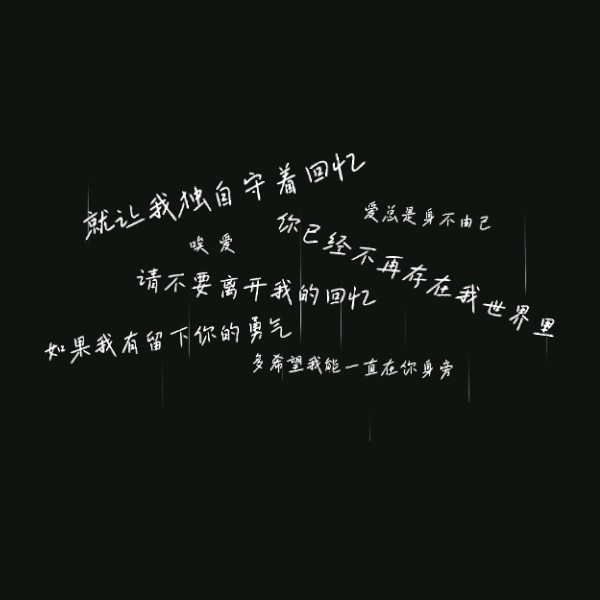 就让我独自守着回忆
爱总是身不由己
你已经不再存在我世界里
唉 爱
请不要离开我的回忆
如果我有留下你的勇气
多希望我能一直在你身旁